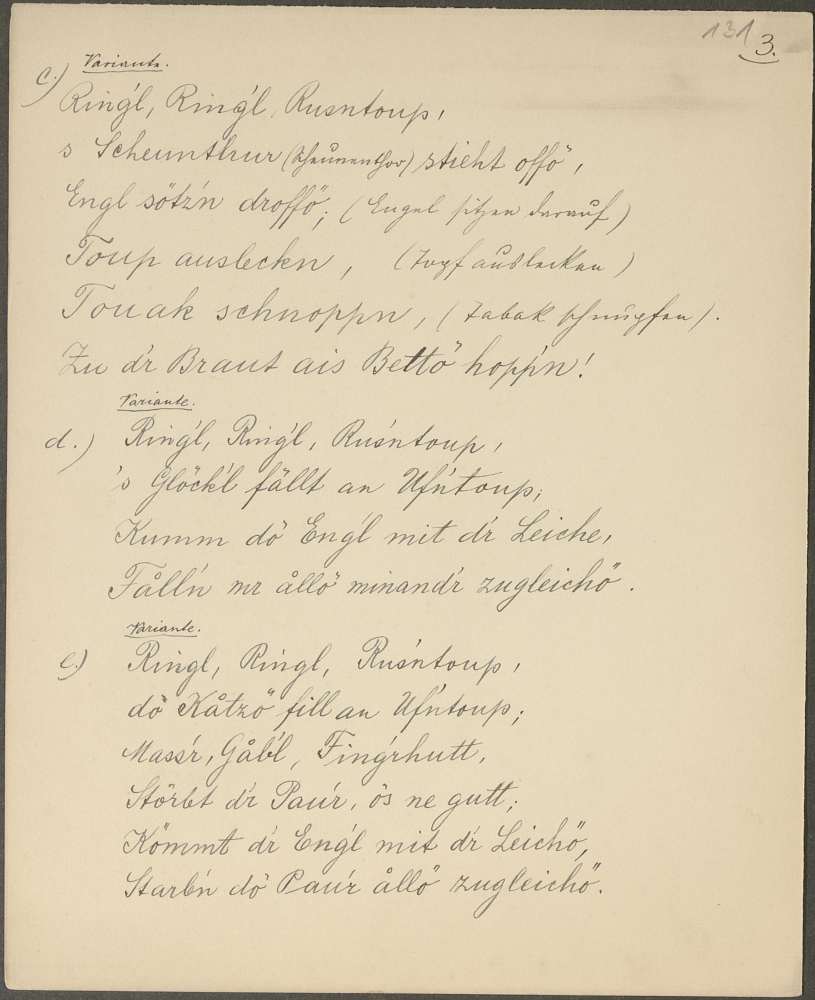 131 3.
c.) Variante.
Ring'l, Ring'l, Rusntoup,
s Scheunthur (Scheunenthor) stieht offö,
Engl sötz'n droffö; (Engel sitzen darauf)
Toup ausleckn, (Topf auslecken)
Touak schnoppn, (Tabak schnupfen).
Zu d'r Braut ais Bettö hopp'n!
Variante.
d.) Ring'l, Ring'l, Rus'ntoup,
's Glöck'l fällt an Uf'ntoup;
Kumm dö Eng'l mit d'r Leiche,
Fåll'n mr ållö minand'r zugleichö.
Variante.
e.) Ringl, Ringl, Rus'ntoup,
dö Kåtzö fill an Uf'ntoup;
Mass'r, Gåb'l, Fing'rhutt,
Störbt d'r Pau'r, ös ne gutt;
Kömmt d'r Eng'l mit d'r Leichö,
Starb'n dö Pau'r ållö zugleichö.